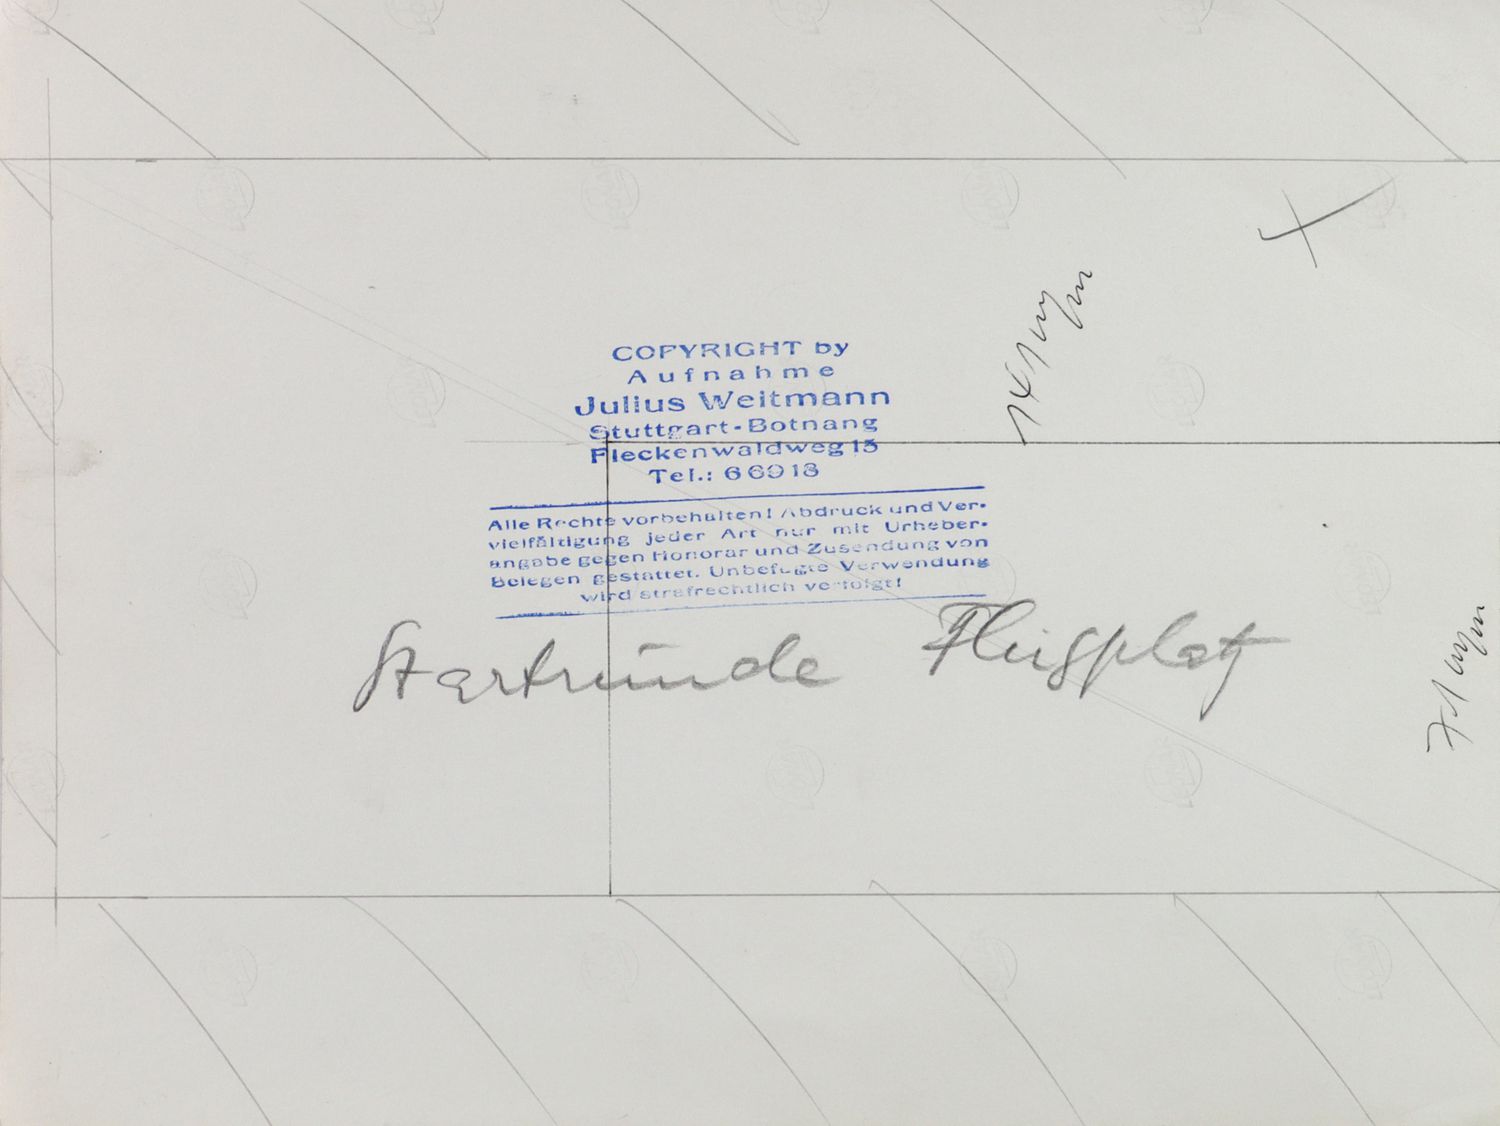 COPYRIGHT by
Aufnahme
Julius Weitmann
Stuttgart-Botnang
Fleckenwaldweg 15
Tel.: 66918
Alle Rechte vorbehalten! Abdruck und Ver-
vielfältigung jeder Art nur mit Urheber-
angabe gegen Honorar und Zusendung von
Belegen gestattet. Unbefugte Verwendung
wird strafrechtlich verfolgt!
Startrunde Flugplatz
141 mm
71 mm